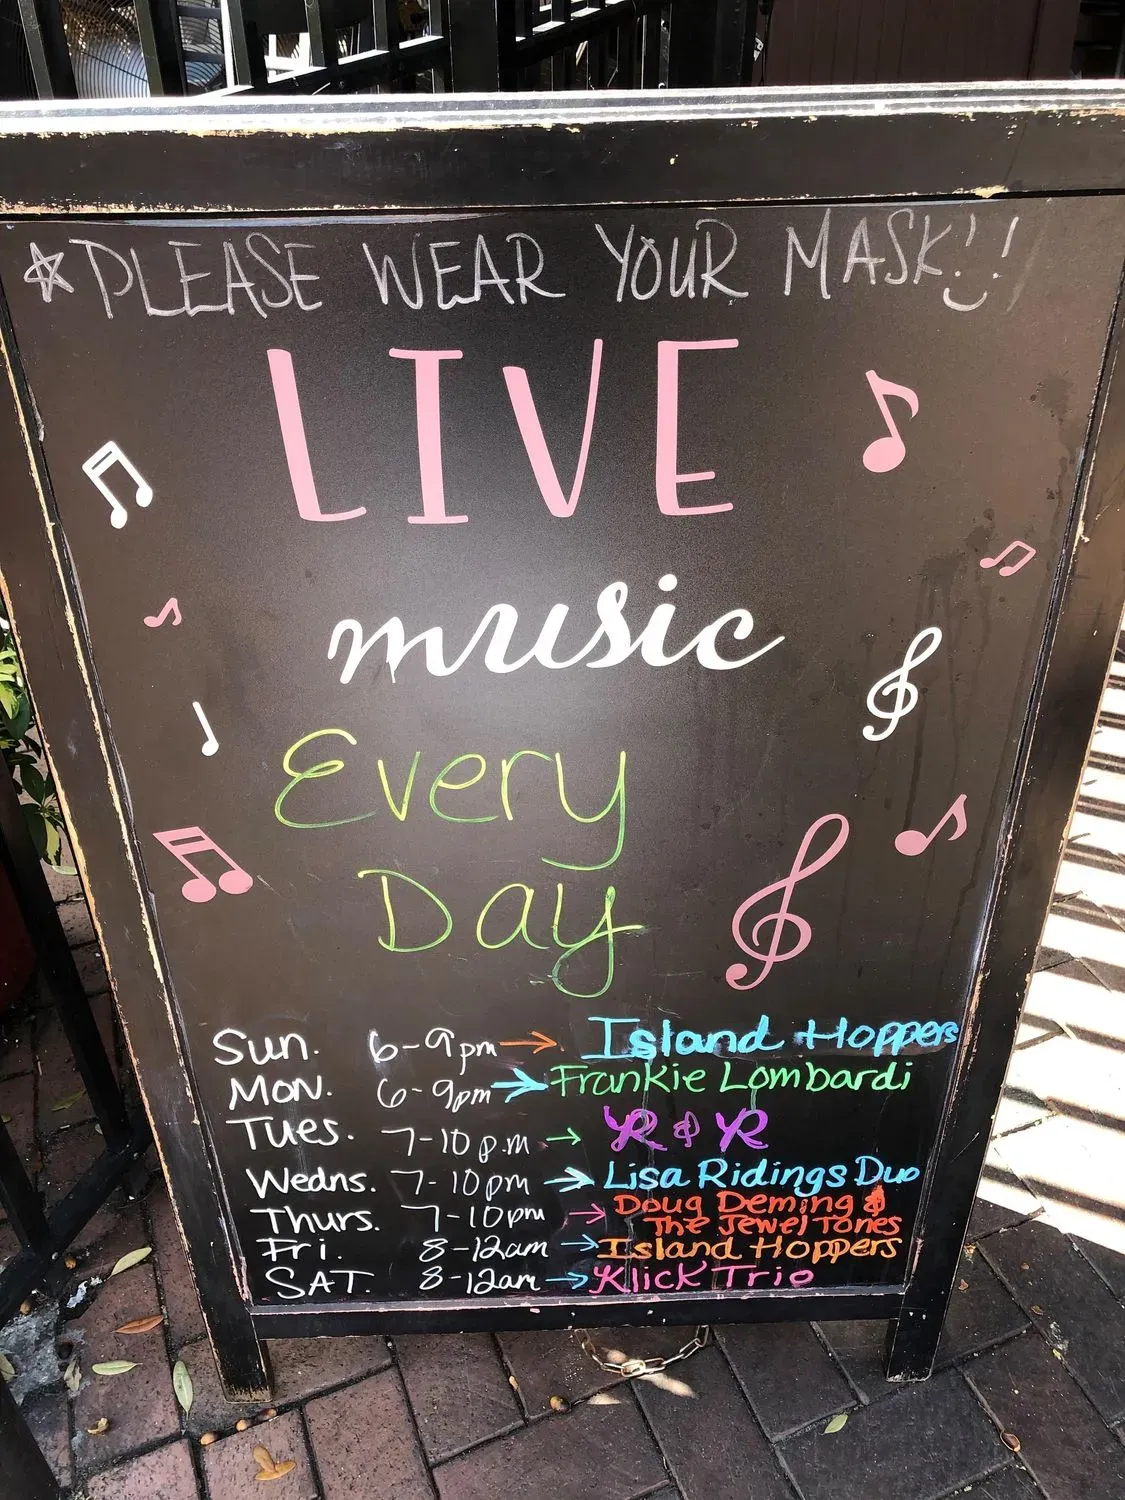 PLEASE WEAR YOUR MASK!!
LIVE
music
Every
Day
Sun. 6-9pm → Island Hoppers
MON. 6-9pm → Frankie Lombardi
Tues. 7-10p.m → YR & YR
Wedns. 7-10pm → Lisa Ridings Duo
Thurs. 7-10pm → Doug Deming &
The Jewel Tones
Fri. 8-12am → Island Hoppers
SAT. 8-12am → Klick Trio